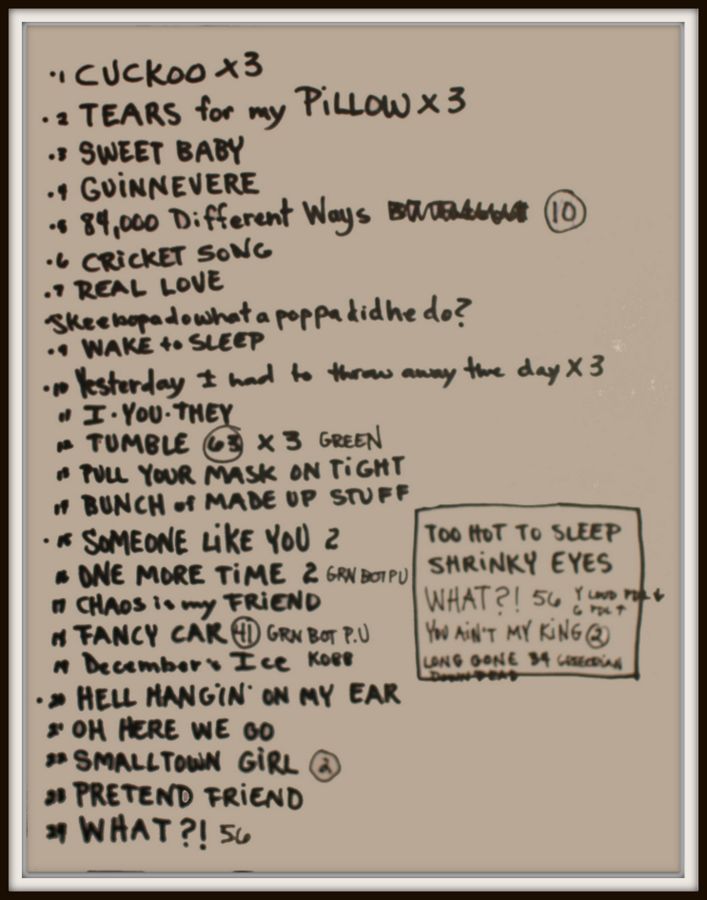 ·1 CUCKOO X3
·2 TEARS for my PiLLOW X 3
·3 SWEET BABY
·4 GUiNNEVERE
·5 84,000 Different Ways 10
·6 CRiCKET SONG
·7 REAL LOVE
Skeebopadowhatapoppadidhe do?
·9 WAKE to SLEEP
·10 Yesterday I had to throw away the day X 3
11 I·YOU·THEY
12 TUMBLE 63 X 3 GREEN
13 PULL YOUR MASK ON TiGHT
14 BUNCH of MADE UP STUFF
·15 SOMEONE LiKE YOU 2
16 ONE MORE TiME 2 GRN BOT PU
17 CHAOS is my FRiEND
18 FANCY CAR 41 GRN BOT P.U
19 December's Ice
·20 HELL HANGiN' ON MY EAR
21 OH HERE WE GO
22 SMALLTOWN GiRL 2
23 PRETEND FRiEND
24 WHAT?! 56
TOO HOT TO SLEEP
SHRiNKY EYES
WHAT?! 56 Y LOUD PDL ↓
G PDL ↑
YOU AiN'T MY KiNG 2
LONG GONE 34